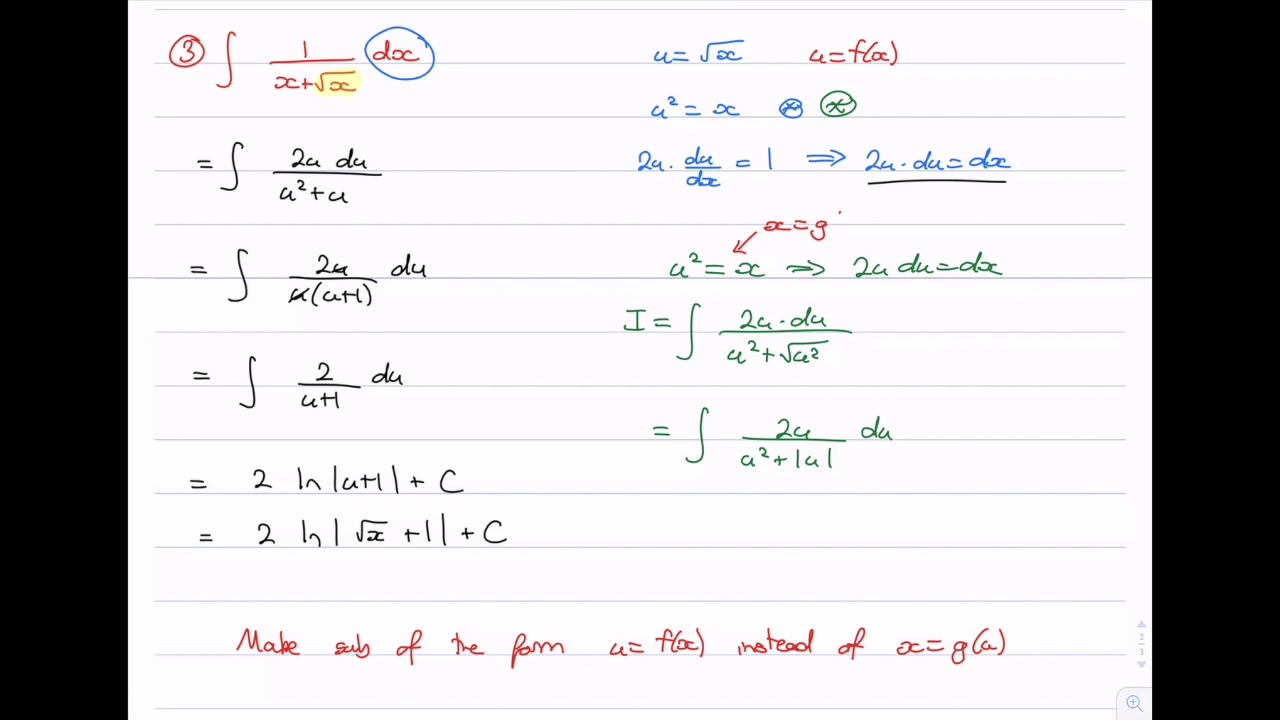 ③ ∫ 1/(x+√x) dx
= ∫ 2u du/(u²+u)
= ∫ 2u/(u(u+1)) du
= ∫ 2/(u+1) du
= 2 ln|u+1| + C
= 2 ln|√x +1| + C
u = √x u = f(x)
u² = x ⊛ ⊛
2u · du/dx = 1 ⇒ 2u · du = dx
x = g
u² = x ⇒ 2u du = dx
I = ∫ 2u · du/(u²+√u²)
= ∫ 2u/(u²+|u|) du
Make sub of the form u = f(x) instead of x = g(u)
2
3